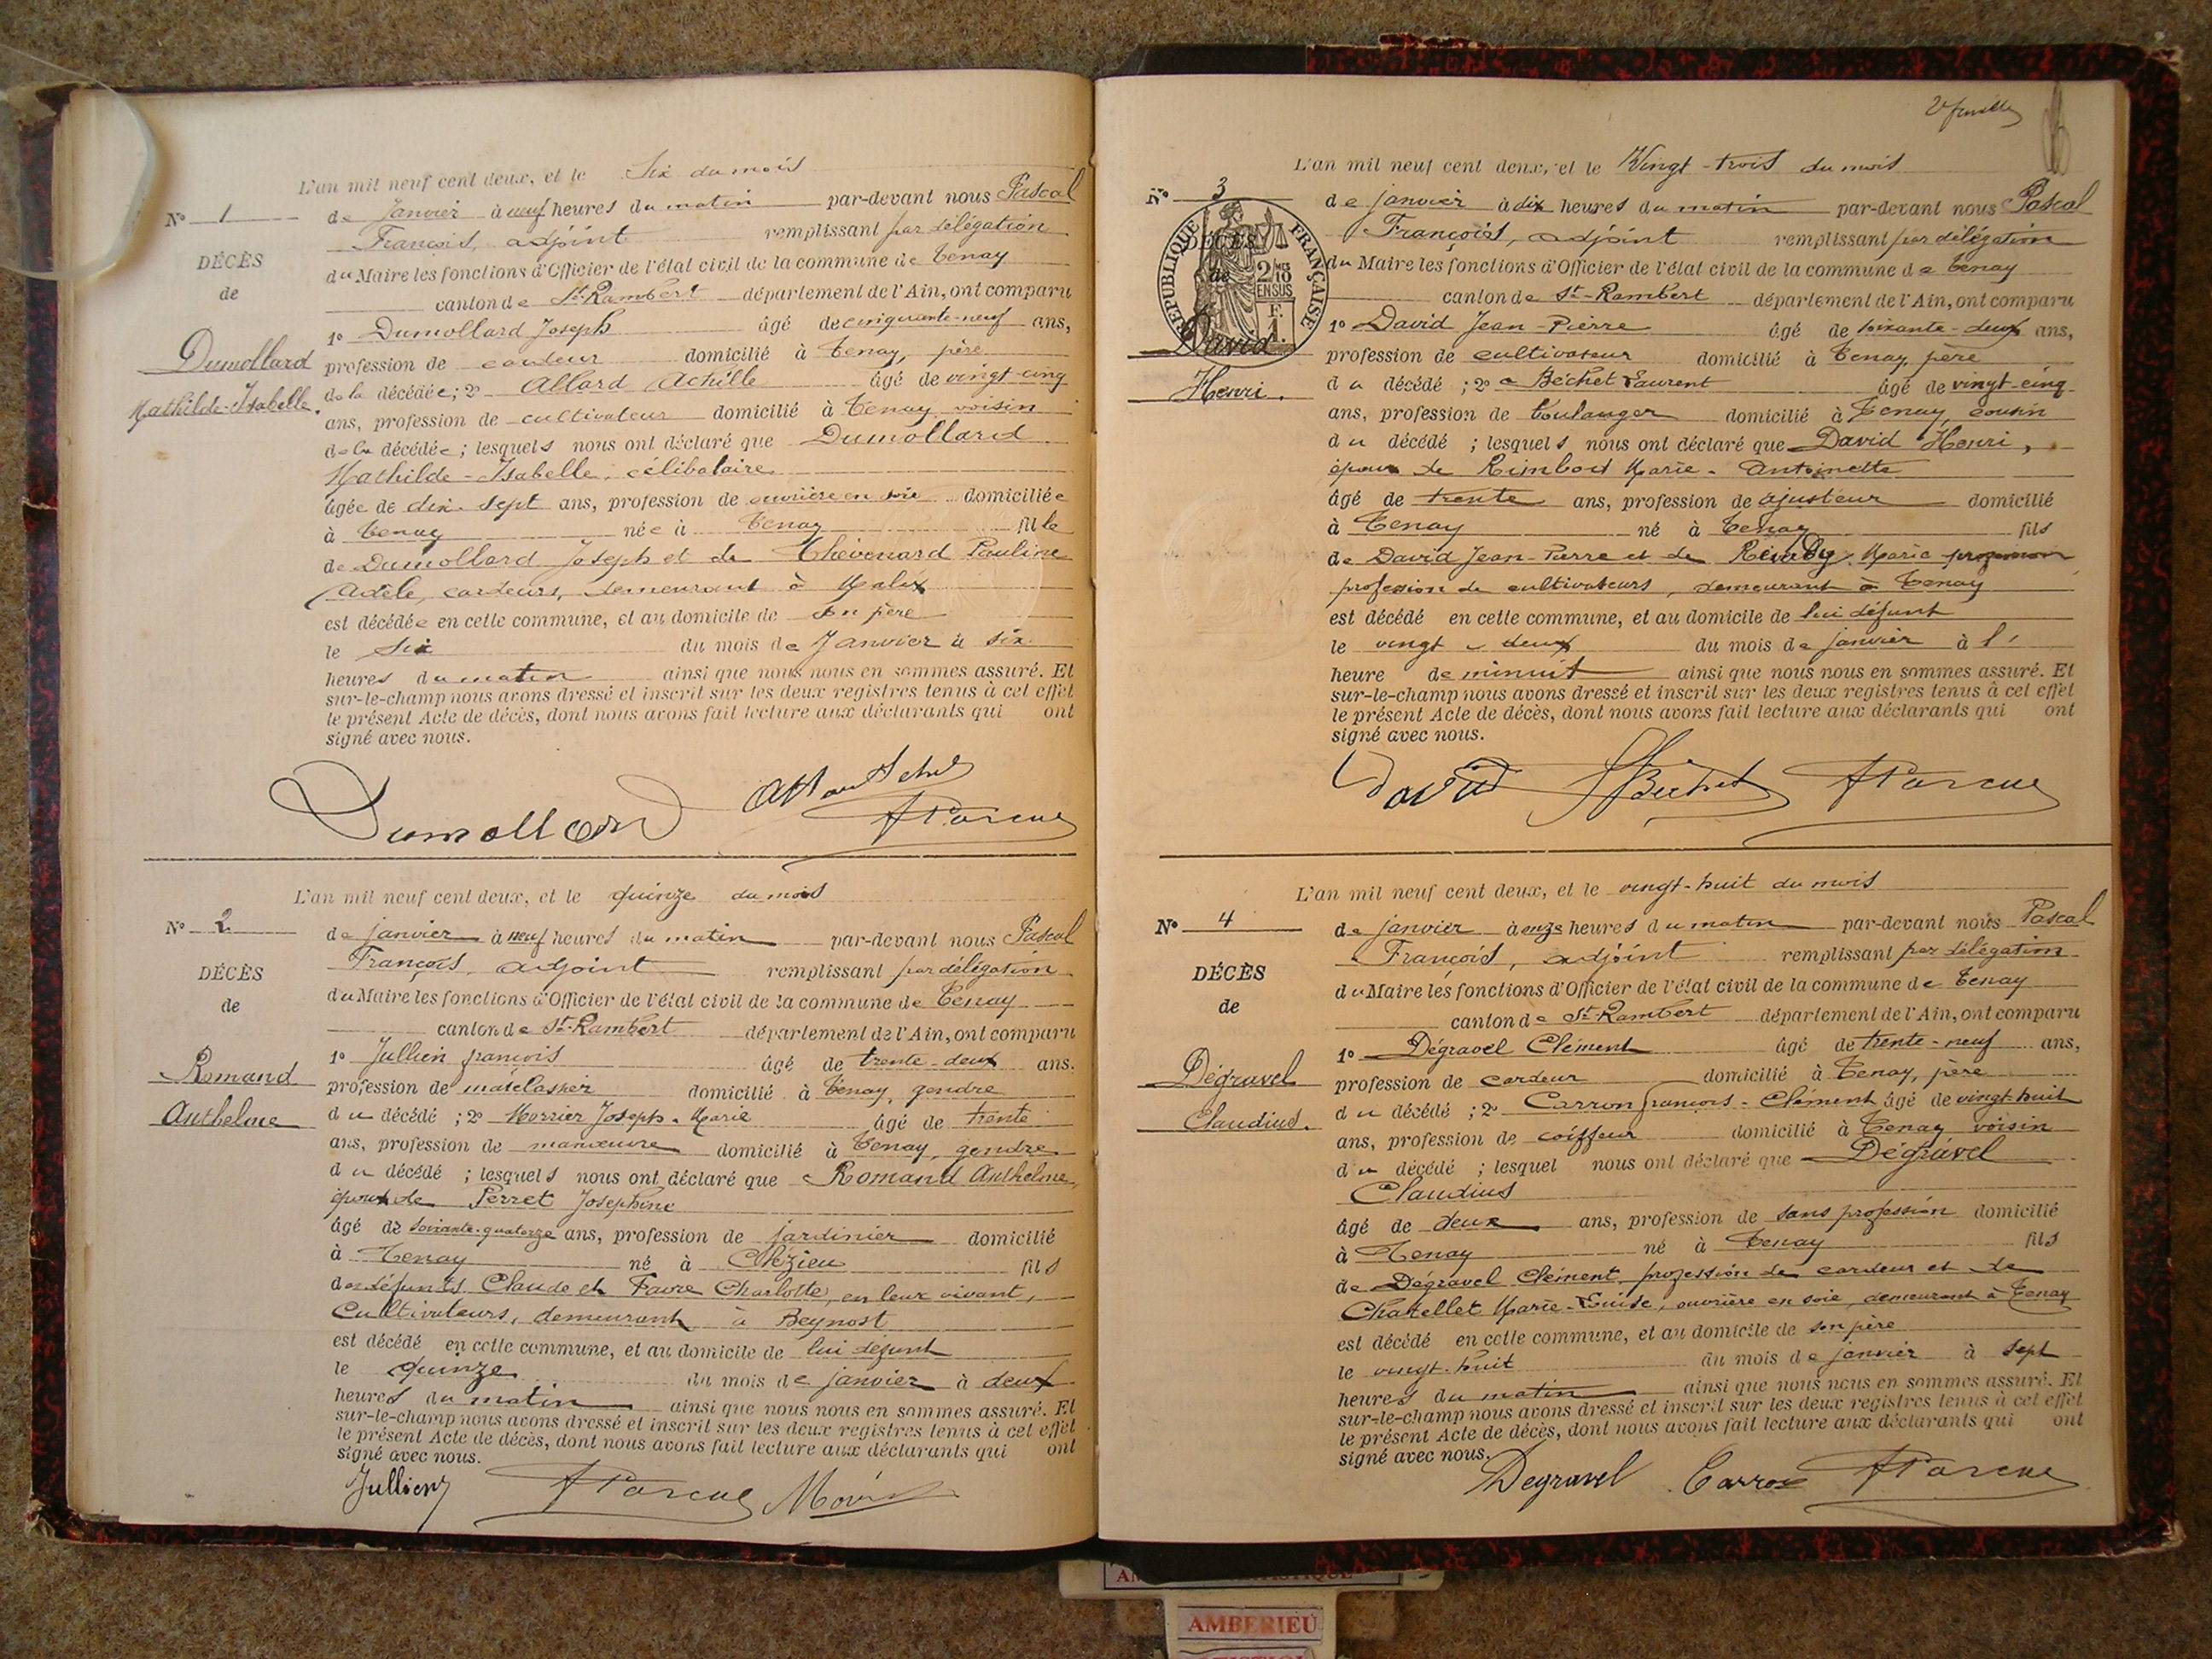 L'an mil neuf cent deux, et le Six du mois
N° 1
de Janvier à neuf heures du matin par-devant nous Pascal
François, adjoint remplissant par délégation
DÉCÈS
du Maire les fonctions d'Officier de l'état civil de la commune de Tenay
de
canton de St-Rambert département de l'Ain, ont comparu
1° Dumollard Joseph âgé de cinquante-neuf ans,
Dumollard
profession de cardeur domicilié à Tenay, père
Mathilde-Isabelle.
de la décédée; 2° Allard Achille âgé de vingt-cinq
ans, profession de cultivateur domicilié à Tenay, voisin
de la décédée; lesquels nous ont déclaré que Dumollard
Mathilde-Isabelle, célibataire
âgée de dix-sept ans, profession de ouvrière en soie domiciliée
à Tenay née à Tenay fille
de Dumollard Joseph et de Thévenard Pauline
Adèle, cardeurs, demeurant à Malix
est décédée en cette commune, et au domicile de son père
le six du mois de Janvier à six
heures du matin ainsi que nous nous en sommes assuré. Et
sur-le-champ nous avons dressé et inscrit sur les deux registres tenus à cet effet
le présent Acte de décès, dont nous avons fait lecture aux déclarants qui ont
signé avec nous.
Dumollard
L'an mil neuf cent deux, et le quinze du mois
N° 2
de janvier à neuf heures du matin par-devant nous Pascal
François, adjoint remplissant par délégation
DÉCÈS
du Maire les fonctions d'Officier de l'état civil de la commune de Tenay
de
canton de St-Rambert département de l'Ain, ont comparu
1° Jullien françois âgé de trente-deux ans.
Romand
profession de matelassier domicilié à Tenay, gendre
Anthelme
du décédé; 2° Morrier Joseph-Marie âgé de trente
ans, profession de manœuvre domicilié à Tenay, gendre
du décédé; lesquels nous ont déclaré que Romand Anthelme,
époux de Perret Joséphine
âgé de soixante-quatorze ans, profession de jardinier domicilié
à Tenay né à fils
des défunts Claude et Favre Charlotte, en leur vivant,
Cultivateurs, demeurant à Beynost
est décédé en cette commune, et au domicile de lui défunt
le quinze du mois de janvier à deux
heures du matin ainsi que nous nous en sommes assuré. Et
sur-le-champ nous avons dressé et inscrit sur les deux registres tenus à cet effet
le présent Acte de décès, dont nous avons fait lecture aux déclarants qui ont
signé avec nous.
Jullien
2e feuille
L'an mil neuf cent deux, et le Vingt-trois du mois
N° 3
de janvier à dix heures du matin par-devant nous Pascal
François, adjoint remplissant par délégation
RÉPUBLIQUE FRANÇAISE
DÉCÈS
de
2/10 EN SUS
F. 1.
du Maire les fonctions d'Officier de l'état civil de la commune de Tenay
canton de St-Rambert département de l'Ain, ont comparu
1° David Jean-Pierre âgé de soixante-deux ans,
David
profession de cultivateur domicilié à Tenay, père
Henri.
du décédé; 2° Béchet Laurent âgé de vingt-cinq
ans, profession de boulanger domicilié à Tenay, cousin
du décédé; lesquels nous ont déclaré que David Henri,
époux de Rimbod Marie-Antoinette
âgé de trente ans, profession de ajusteur domicilié
à Tenay né à Tenay fils
de David Jean-Pierre et de Marie
profession de cultivateurs, demeurant à Tenay
est décédé en cette commune, et au domicile de lui défunt
le vingt-deux du mois de janvier à l'
heure de minuit ainsi que nous nous en sommes assuré. Et
sur-le-champ nous avons dressé et inscrit sur les deux registres tenus à cet effet
le présent Acte de décès, dont nous avons fait lecture aux déclarants qui ont
signé avec nous.
David Béchet
L'an mil neuf cent deux, et le vingt-huit du mois
N° 4
de janvier à onze heures du matin par-devant nous Pascal
François, adjoint remplissant par délégation
DÉCÈS
du Maire les fonctions d'Officier de l'état civil de la commune de Tenay
de
canton de St-Rambert département de l'Ain, ont comparu
1° Dégravel Clément âgé de trente-neuf ans,
Dégravel
profession de cardeur domicilié à Tenay, père
Claudius.
du décédé; 2° Carron françois-Clément âgé de vingt-huit
ans, profession de coiffeur domicilié à Tenay voisin
du décédé; lesquel nous ont déclaré que Dégravel
Claudius
âgé de deux ans, profession de sans profession domicilié
à Tenay né à Tenay fils
de Dégravel Clément, profession de cardeur et de
Chatellet Marie-Louise, ouvrière en soie, demeurant à Tenay
est décédé en cette commune, et au domicile de son père
le vingt-huit du mois de janvier à sept
heures du matin ainsi que nous nous en sommes assuré. Et
sur-le-champ nous avons dressé et inscrit sur les deux registres tenus à cet effet
le présent Acte de décès, dont nous avons fait lecture aux déclarants qui ont
signé avec nous.
Degravel Carron
AMBERIEU